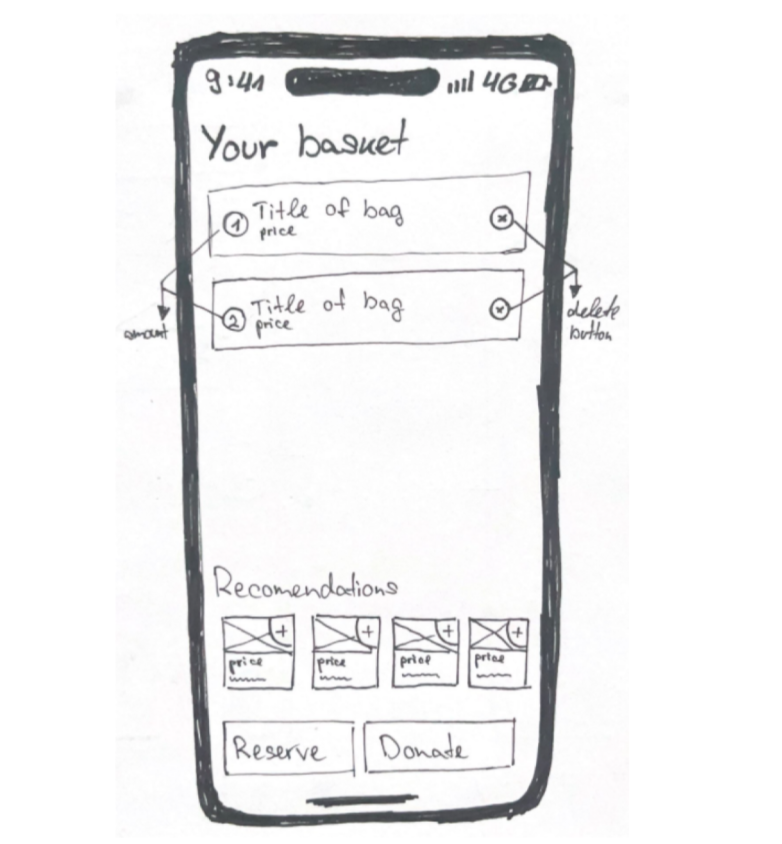 9:41 4G
Your basket
1 Title of bag
price
2 Title of bag
price
amount
delete
button
Recomendations
+ + + +
price price price price
Reserve Donate